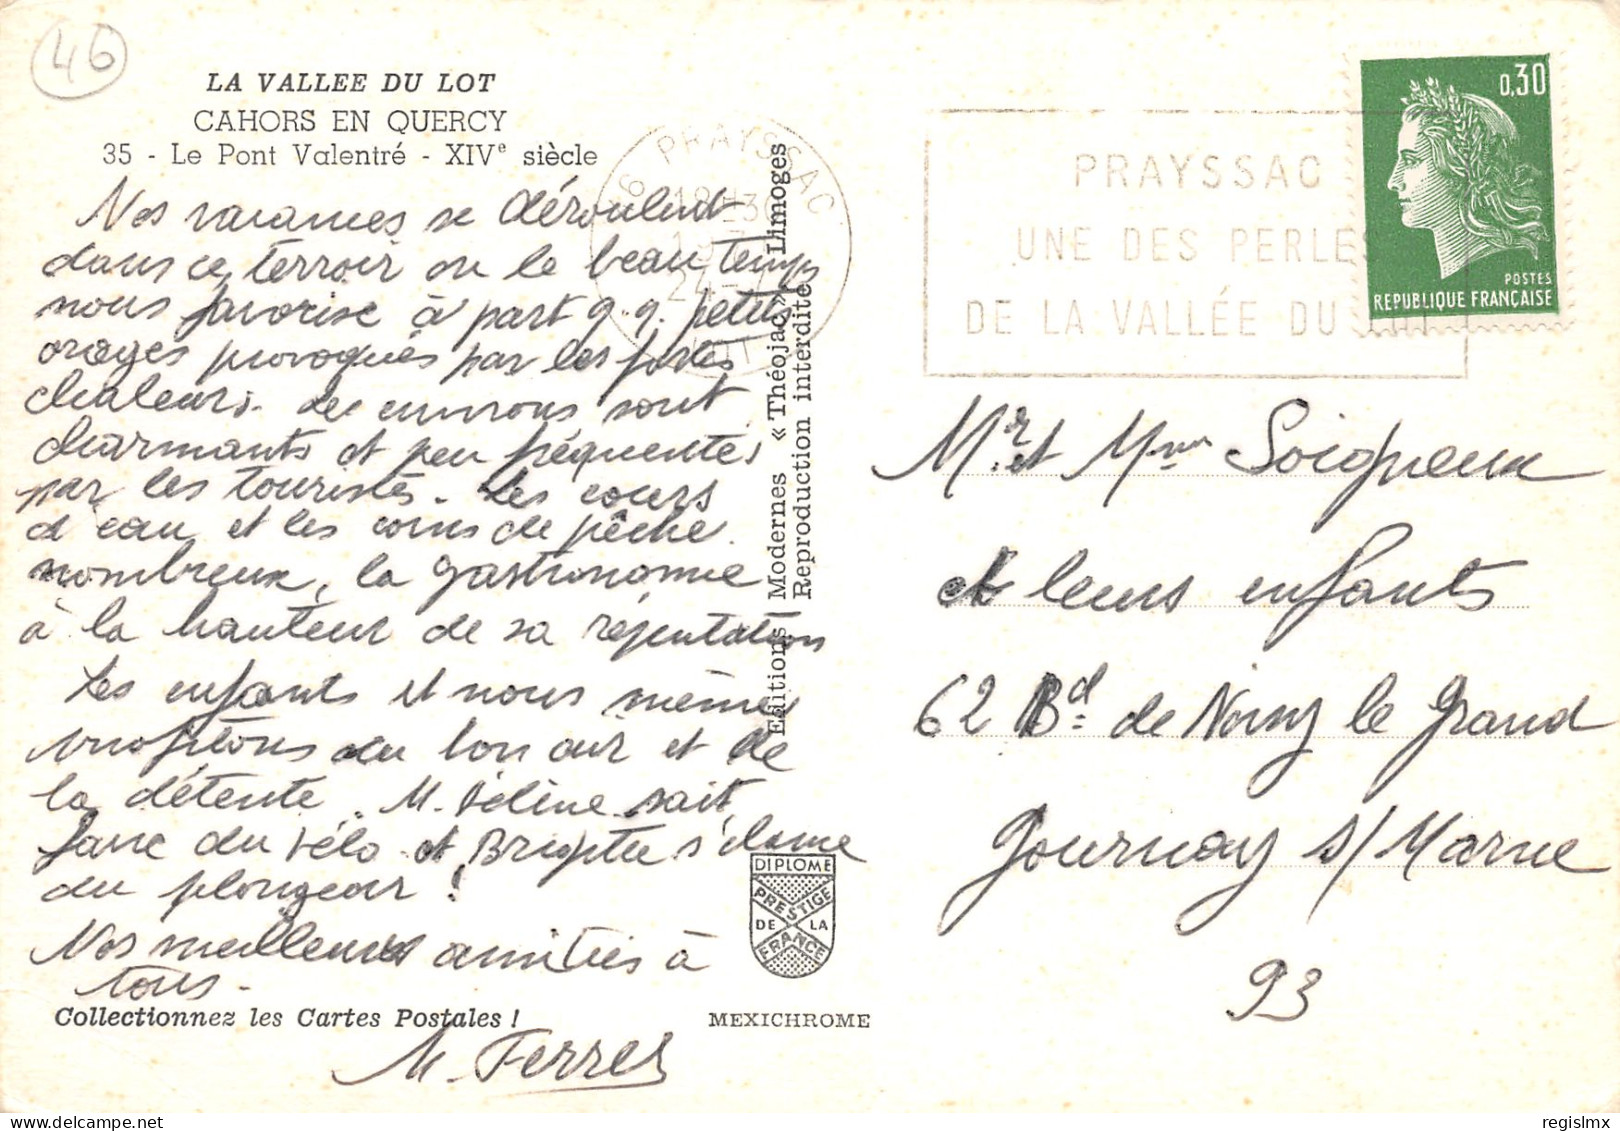 46
LA VALLEE DU LOT
CAHORS EN QUERCY
35 - Le Pont Valentré - XIVe siècle
Nos vacances se déroulent
dans ce terroir ou le beau temps
nous favorise à part q.q. petits
orages provoqués par les fortes
chaleurs. Les environs sont
charmants et peu fréquentés
par les touristes. Les cours
d'eau et les coins de pêche
nombreux, la gastronomie
à la hauteur de sa réputation
Les enfants et nous même
profitons du bon air et de
la détente. M. Hélène sait
faire du vélo et Brigitte s'élance
du plongeoir !
Nos meilleures amitiés à
tous.
Collectionnez les Cartes Postales !
M. Ferrel
Editions Modernes « Théojac » Limoges
Reproduction interdite
DIPLOME
PRESTIGE
DE LA
FRANCE
MEXICHROME
46 PRAYSSAC
18 H30
LOT
PRAYSSAC
UNE DES PERLES
DE LA VALLÉE DU LOT
0,30
POSTES
REPUBLIQUE FRANÇAISE
Mr. et Mme Soigneux
et leurs enfants
62 Bd. de Noisy le Grand
Gournay s/ Marne
93
regislmx